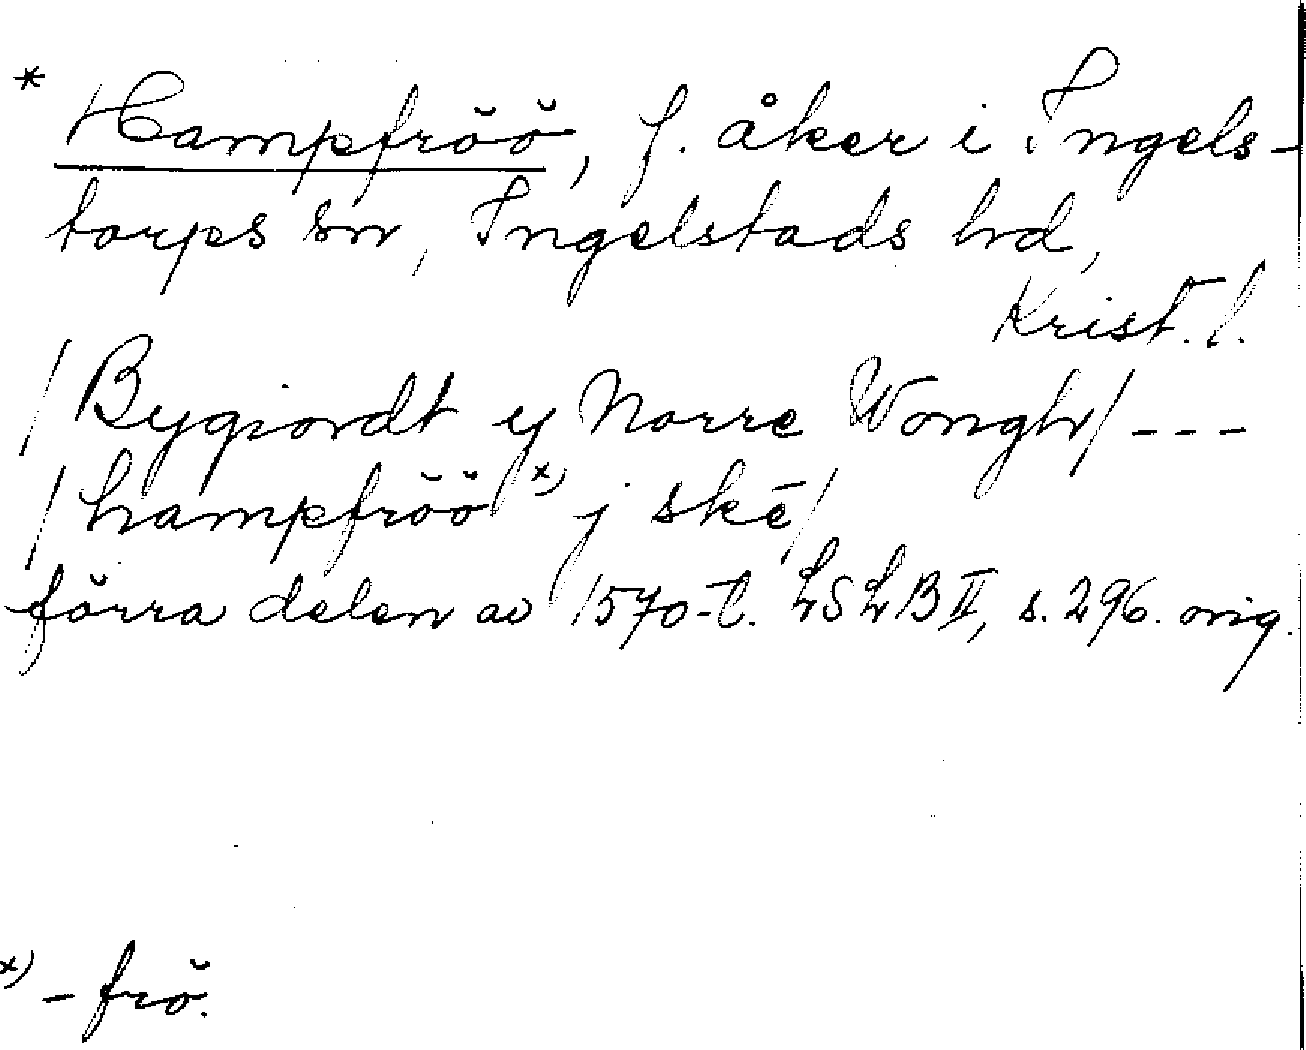 * Hampfröö, f. åker i Ingels-
torps sn, Ingelstads hd,
Krist. l.
/Bygiordt ej Norre Wongh/ ---
/hampfröö x) j skē/
förra delen av 1570-t. LSLB II, s. 296. orig.
x) -frö.